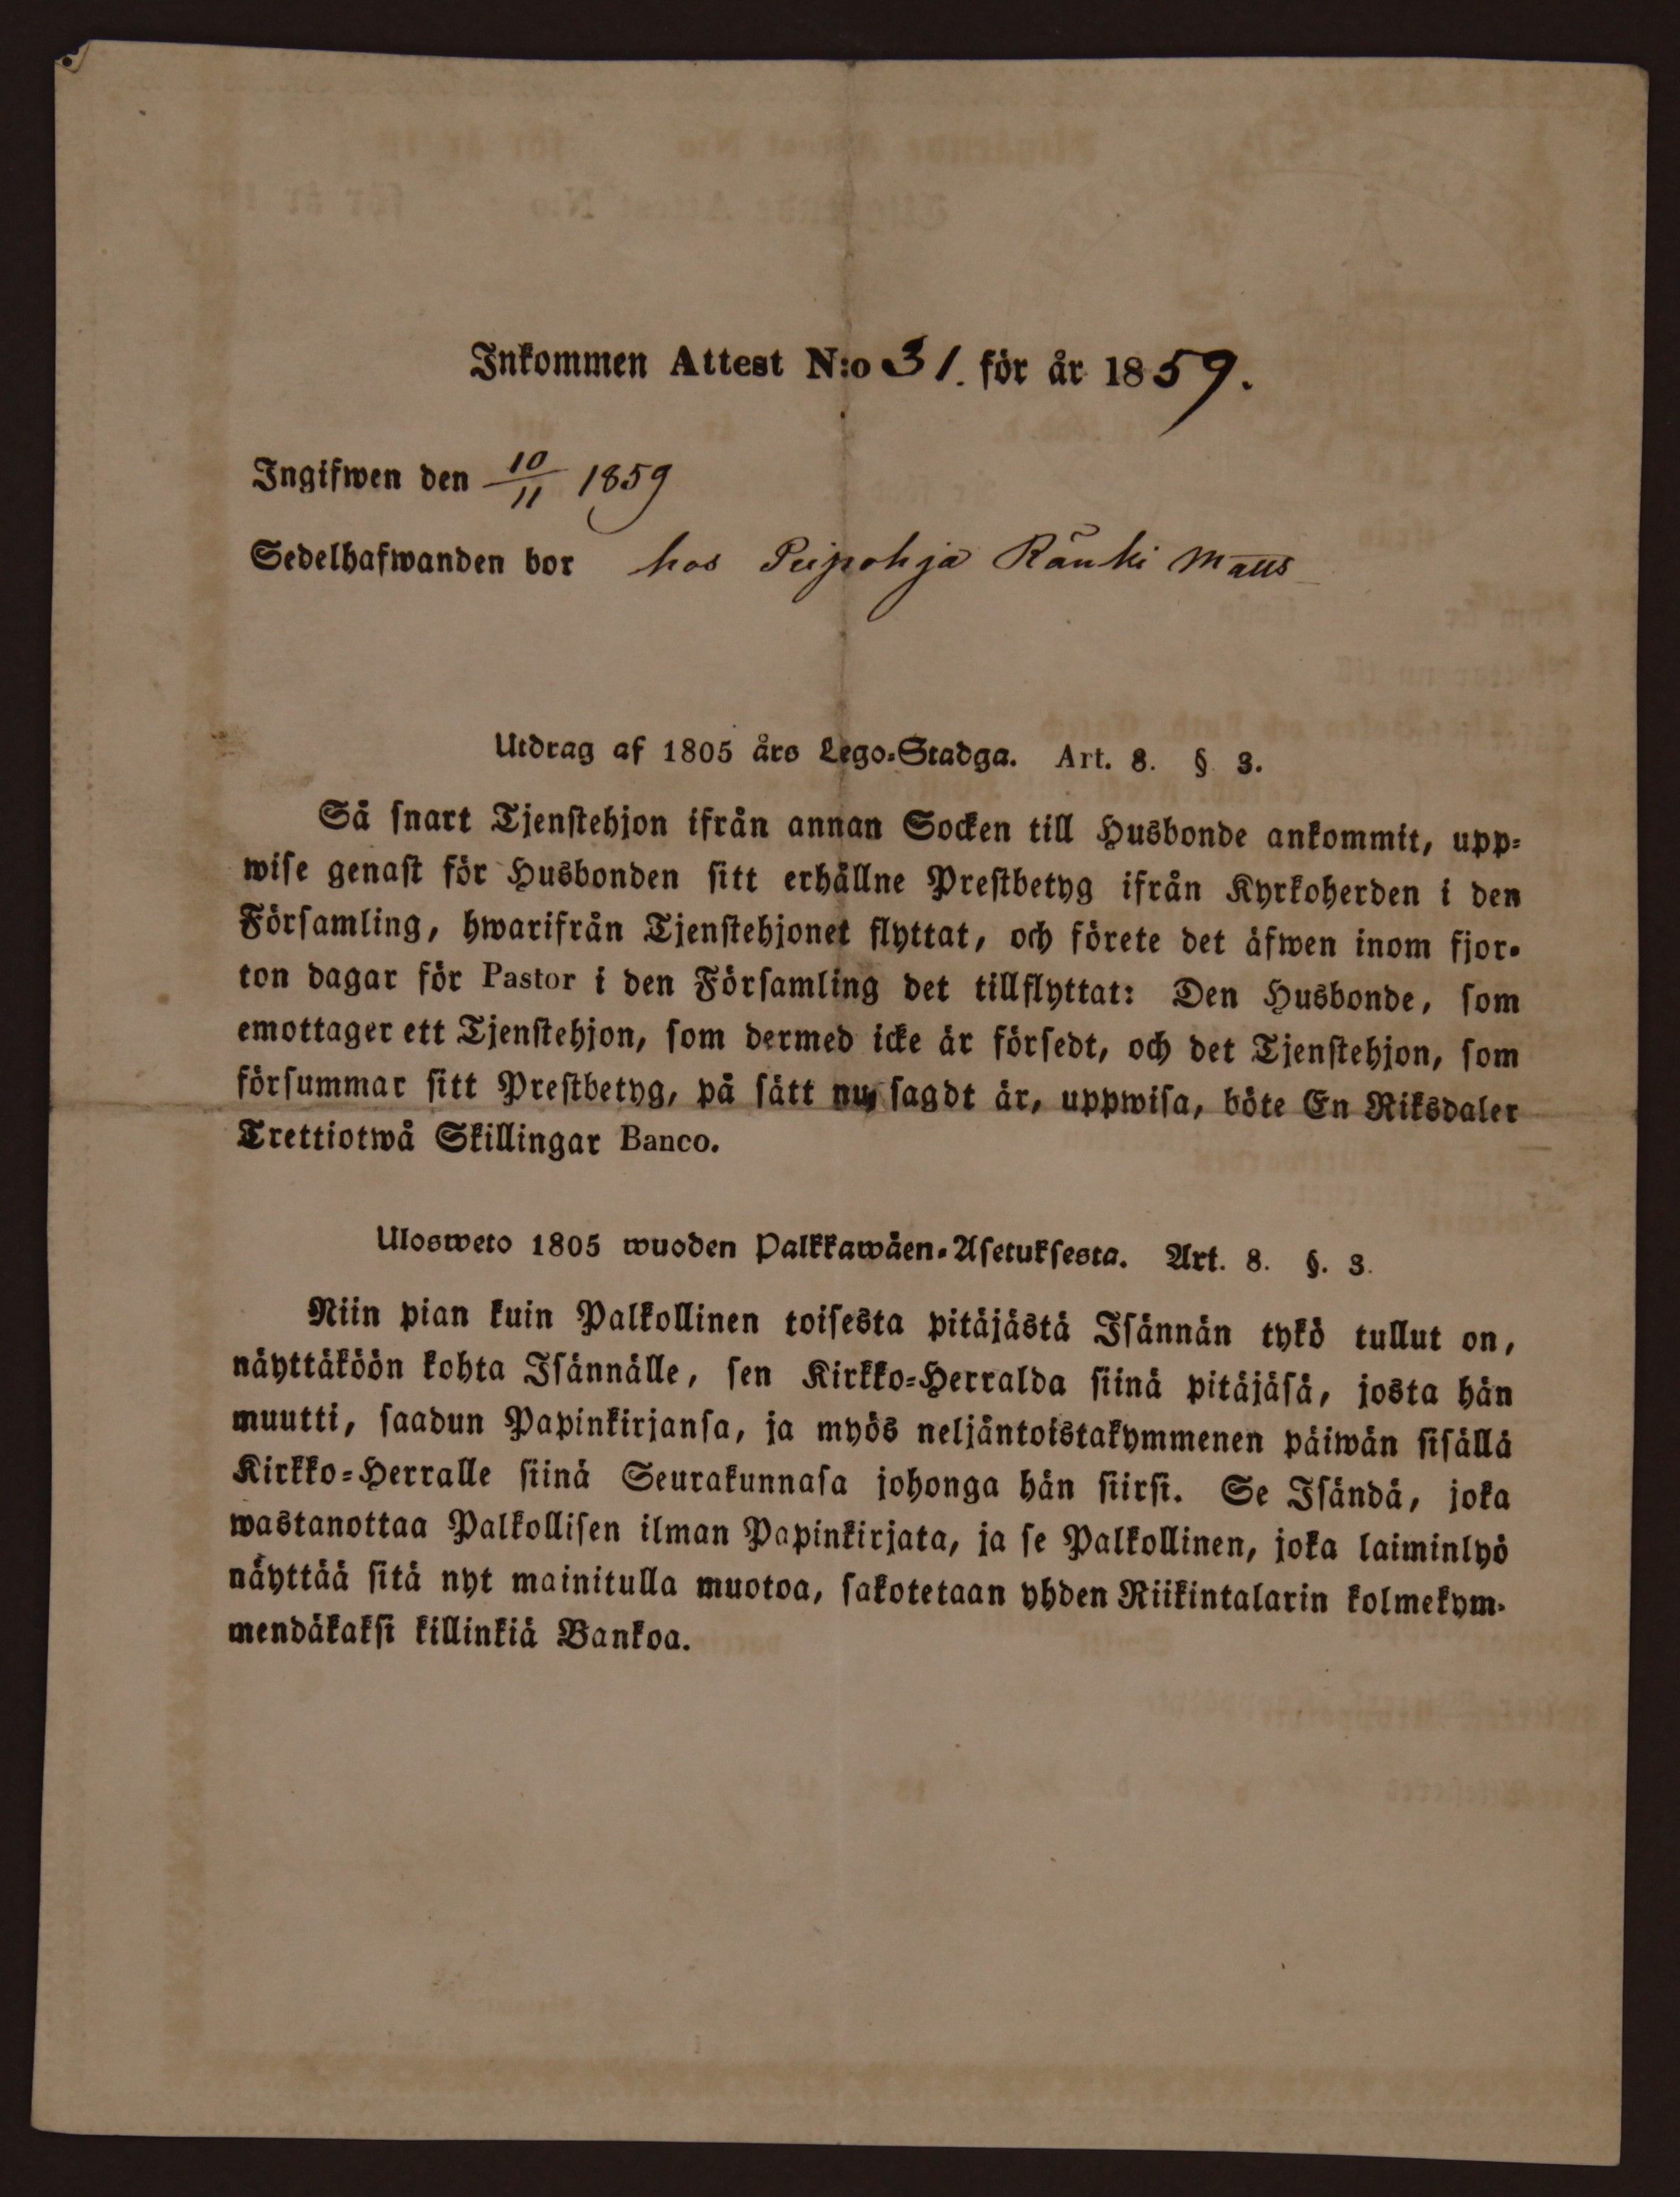 Inkommen Attest N:o 31. för år 1859.
Ingifwen den 10/11 1859
Sedelhafwanden bor hos Peipohja Räuki Matts
Utdrag af 1805 års Lego-Stadga. Art. 8. § 3.
Så snart Tjenstehjon ifrån annan Socken till Husbonde ankommit, upp-
wise genast för Husbonden sitt erhållne Prestbetyg ifrån Kyrkoherden i den
Församling, hwarifrån Tjenstehjonet flyttat, och förete det äfwen inom fjor-
ton dagar för Pastor i den Församling det tillflyttat: Den Husbonde, som
emottager ett Tjenstehjon, som dermed icke är försedt, och det Tjenstehjon, som
försummar sitt Prestbetyg, på sätt nu sagdt är, uppwisa, böte En Riksdaler
Trettiotwå Skillingar Banco.
Ulosweto 1805 wuoden Palkkawäen-Asetuksesta. Art. 8. §. 3.
Niin pian kuin Palkollinen toisesta pitäjästä Isännän tykö tullut on,
näyttäköön kohta Isännälle, sen Kirkko-Herralda siinä pitäjäsä, josta hän
muutti, saadun Papinkirjansa, ja myös neljäntoistakymmenen päiwän sisällä
Kirkko-Herralle siinä Seurakunnasa johonga hän siirsi. Se Isändä, joka
wastanottaa Palkollisen ilman Papinkirjata, ja se Palkollinen, joka laiminlyö
näyttää sitä nyt mainitulla muotoa, sakotetaan yhden Riikintalarin kolmekym-
mendäkaksi killinkiä Bankoa.